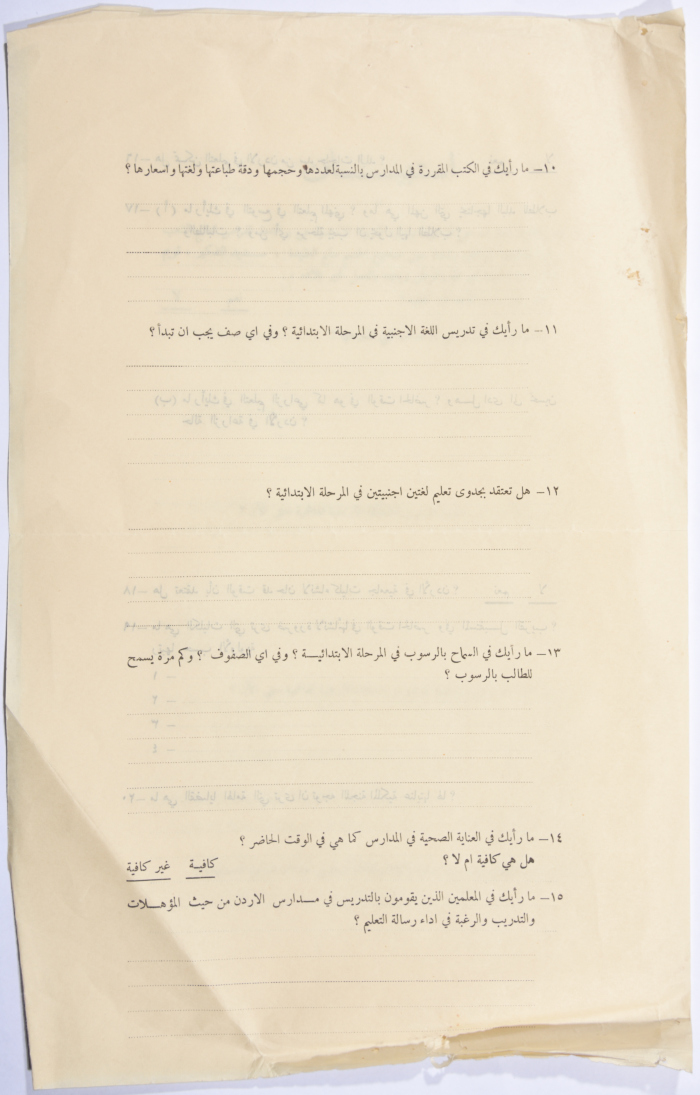 ١٠– ما رأيك في الكتب المقررة في المدارس بالنسبة لعددها وحجمها ودقة طباعتها ولغتها واسعارها ؟
١١– ما رأيك في تدريس اللغة الاجنبية في المرحلة الابتدائية ؟ وفي اي صف يجب ان تبدأ ؟
١٢– هل تعتقد بجدوى تعليم لغتين اجنبيتين في المرحلة الابتدائية ؟
١٣– ما رأيك في السماح بالرسوب في المرحلة الابتدائيـــة ؟ وفي اي الصفوف ؟ وكم مرة يسمح
للطالب بالرسوب ؟
١٤– ما رأيك في العناية الصحية في المدارس كما هي في الوقت الحاضر ؟
هل هي كافية ام لا ؟ كافيـة غير كافية
١٥– ما رأيك في المعلمين الذين يقومون بالتدريس في مــدارس الاردن من حيث المؤهــلات
والتدريب والرغبة في اداء رسالة التعليم ؟